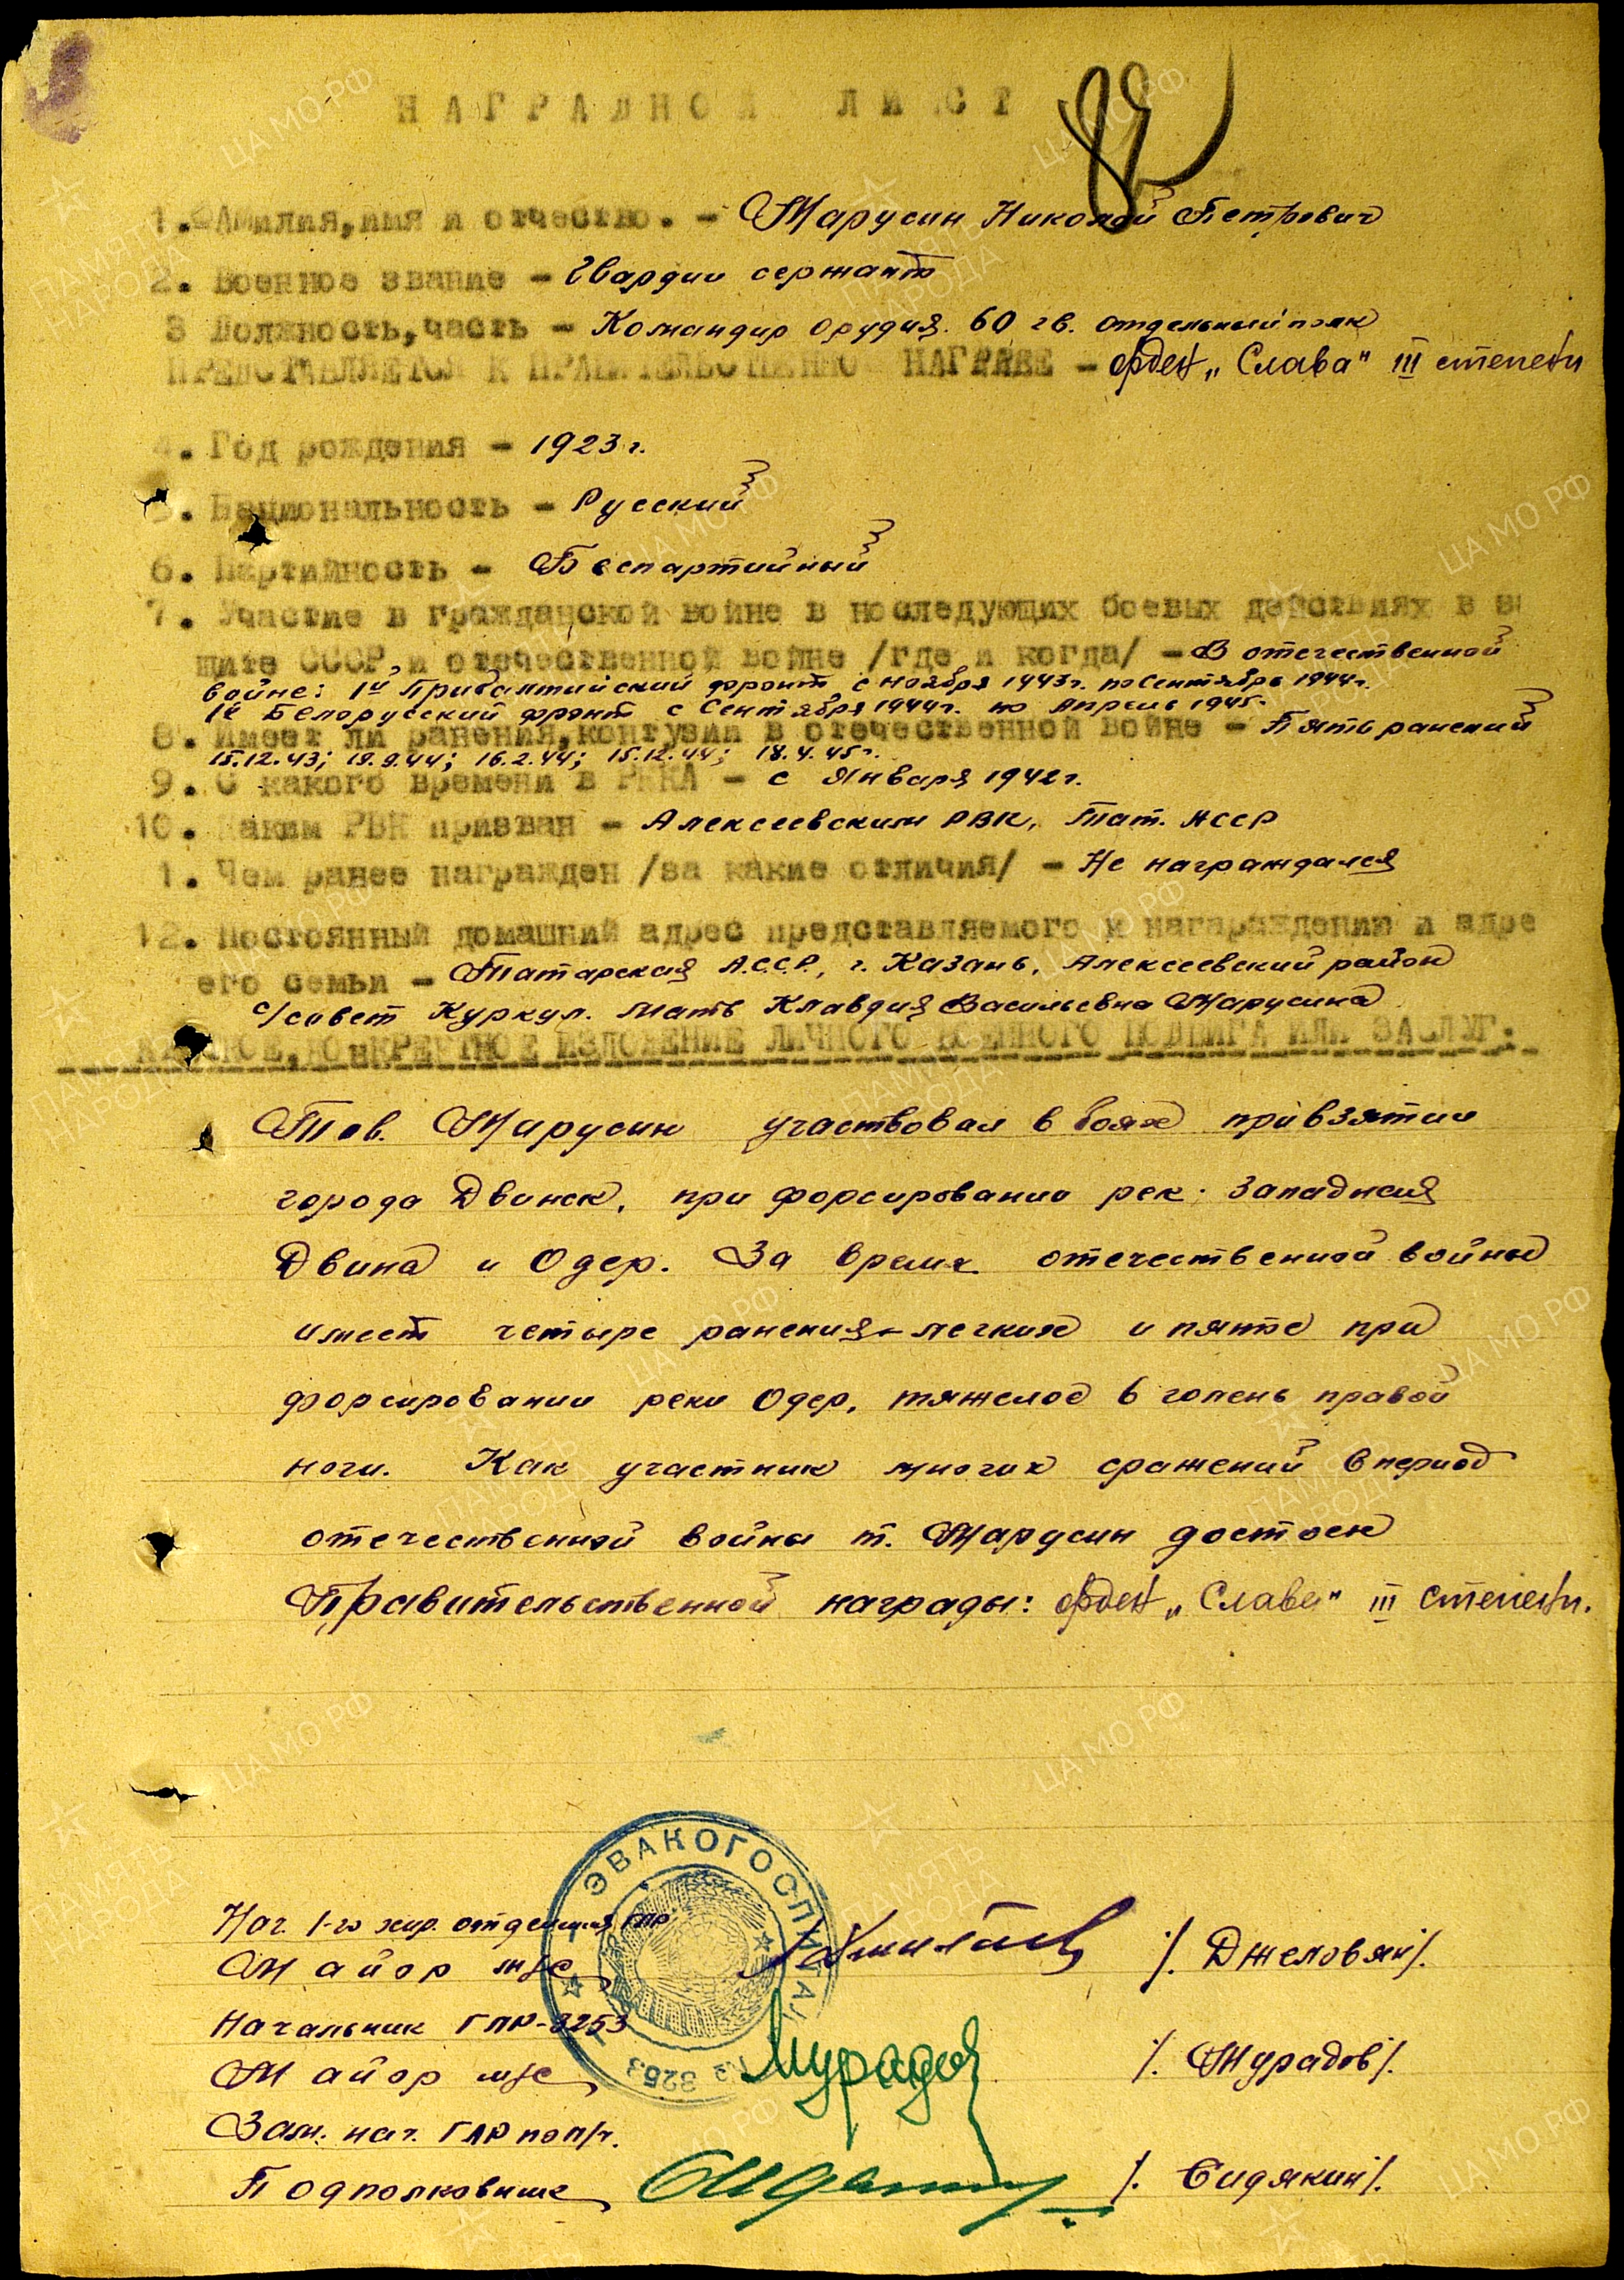 НАГРАДНОЙ ЛИСТ
1. Фамилия, имя и отчество. - Марусин Николай Петрович
2. Военное звание - Гвардии сержант
3 Должность, часть - Командир орудия. 60 гв. отдельный полк
ПРЕДСТАВЛЯЕТСЯ К ПРАВИТЕЛЬСТВЕННОЙ НАГРАДЕ - орден „Слава" III степени
4. Год рождения - 1923 г.
5. Национальность - Русский
6. Партийность - Беспартийный
7. Участие в гражданской войне в последующих боевых действиях в за
щите СССР и отечественной войне /где и когда/ - В отечественной
войне: 1й Прибалтийский фронт с ноября 1943г. по Сентябрь 1944г.
1й Белорусский фронт с Сентября 1944г. по Апрель 1945.
8. Имеет ли ранения, контузии в отечественной войне - Пять ранений
15.12.43; 19.9.44; 16.2.44; 15.12.44; 18.4.45г.
9. С какого времени в РККА - с Января 1942г.
10. Каким РВК призван - Алексеевским РВК, Тат. АССР
1. Чем ранее награжден /за какие отличия/ - Не награждался
12. Постоянный домашний адрес представляемого к награждению и адре
его семьи - Татарская А.С.С.Р., г. Казань, Алексеевский район
с/совет Куркул. Мать Клавдия Васильевна Марусина
КРАТКОЕ, КОНКРЕТНОЕ ИЗЛОЖЕНИЕ ЛИЧНОГО ВОЕННОГО ПОДВИГА ИЛИ ЗАСЛУГ:
Тов. Марусин участвовал в боях при взятии
города Двинск, при форсировании рек. Западная
Двина и Одер. За время отечественной войны
имеет четыре ранения - легких и пятое при
форсировании реки Одер, тяжелое в голень правой
ноги. Как участник многих сражений в период
отечественной войны т. Марусин достоен
Правительственной награды: орден „Слава" III степени.
ЭВАКОГОСПИТАЛЬ
№ 3253
Нач. 1-го хир. отделения ГЛР
Майор м/с /. Джеловян/.
Начальник ГЛР-3253
Майор м/с Мурадов /. Мурадов/.
Зам. нач. ГЛР по п/ч.
Подполковник /. Сидякин/.